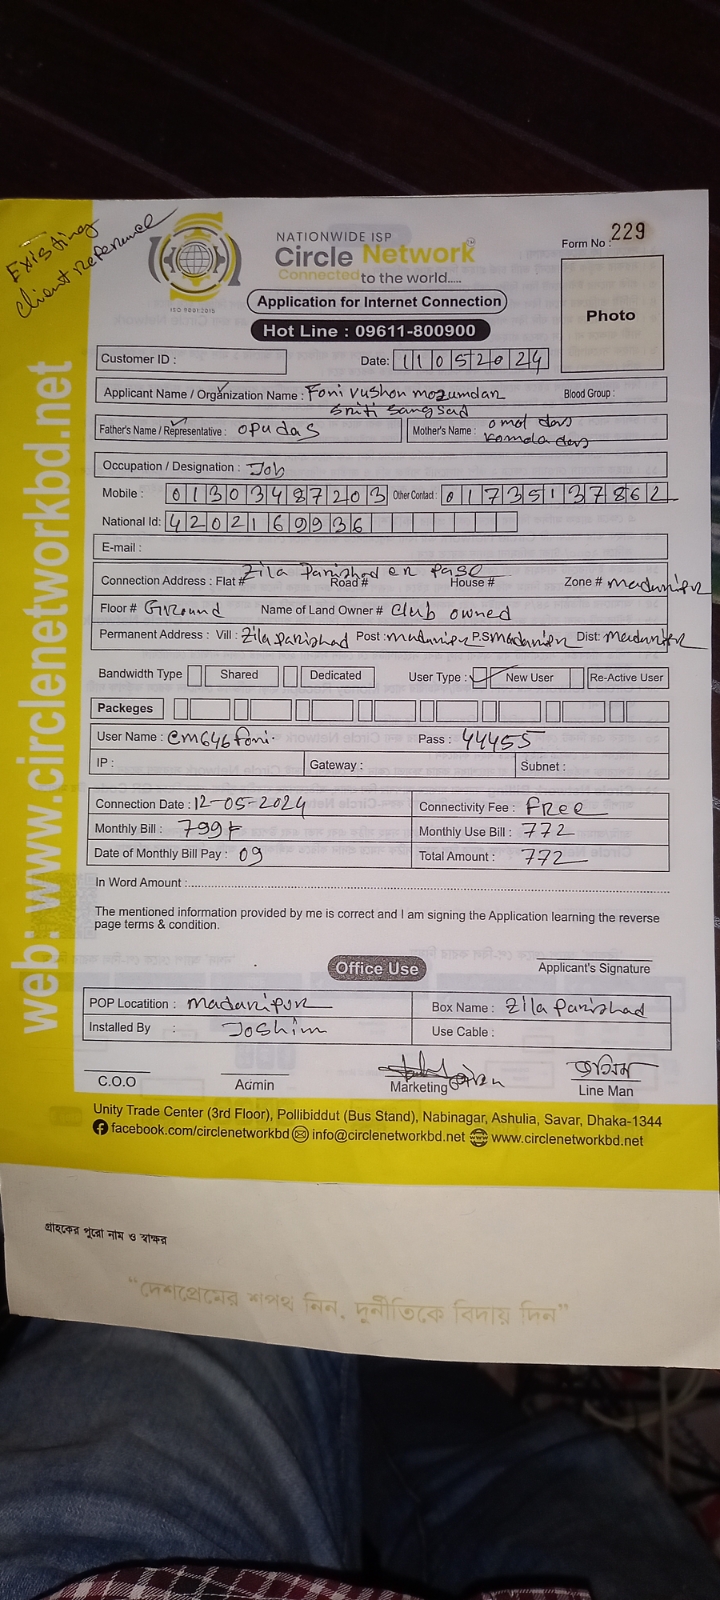 Existing
client reference
NATIONWIDE ISP
Circle Network
Connected to the world.....
ISO 9001:2015
Form No : 229
Application for Internet Connection
Photo
Hot Line : 09611-800900
Customer ID :
Date: 11052024
Applicant Name / Organization Name : Foni vushon mozumdar Blood Group :
sriti sangsad
Father's Name / Representative : opu das Mother's Name : omol das
komola das
Occupation / Designation : Job
Mobile : 01303487203 Other Contact : 01735137862
National Id: 4202169936
E-mail :
Connection Address : Flat # Zila parishad er pase Road # House # Zone # madaripur
Floor # Ground Name of Land Owner # Club owned
Permanent Address : Vill : Zila parishad Post : madaripur P.S madaripur Dist: madaripur
Bandwidth Type Shared Dedicated User Type : New User Re-Active User
Packeges
User Name : cm646foni. Pass : 44455
IP : Gateway : Subnet :
Connection Date : 12-05-2024 Connectivity Fee : FREE
Monthly Bill : 799/- Monthly Use Bill : 772
Date of Monthly Bill Pay : 09 Total Amount : 772
In Word Amount :
The mentioned information provided by me is correct and I am signing the Application learning the reverse
page terms & condition.
Office Use
Applicant's Signature
POP Locatition : madaripur Box Name : Zila parishad
Installed By : Joshim Use Cable :
C.O.O Admin Marketing জসিম Line Man
Unity Trade Center (3rd Floor), Pollibiddut (Bus Stand), Nabinagar, Ashulia, Savar, Dhaka-1344
facebook.com/circlenetworkbd info@circlenetworkbd.net www.circlenetworkbd.net
web: www.circlenetworkbd.net
গ্রাহকের পুরো নাম ও স্বাক্ষর
"দেশপ্রেমের শপথ নিন, দুর্নীতিকে বিদায় দিন"